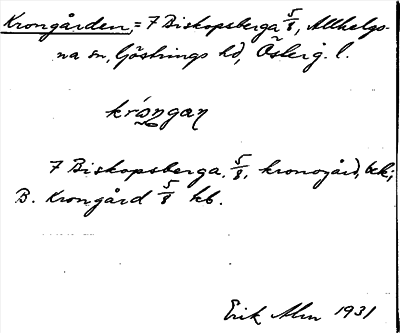 Krongården, = 7 Biskopsberga 5/8, Allhelgo-
na sn, Göstrings hd, Österg. l.
krǫ́ŋgan
7 Biskopsberga 5/8, kronogård, bek;
B. Krongård 5/8 kb.
Erik Alm 1931